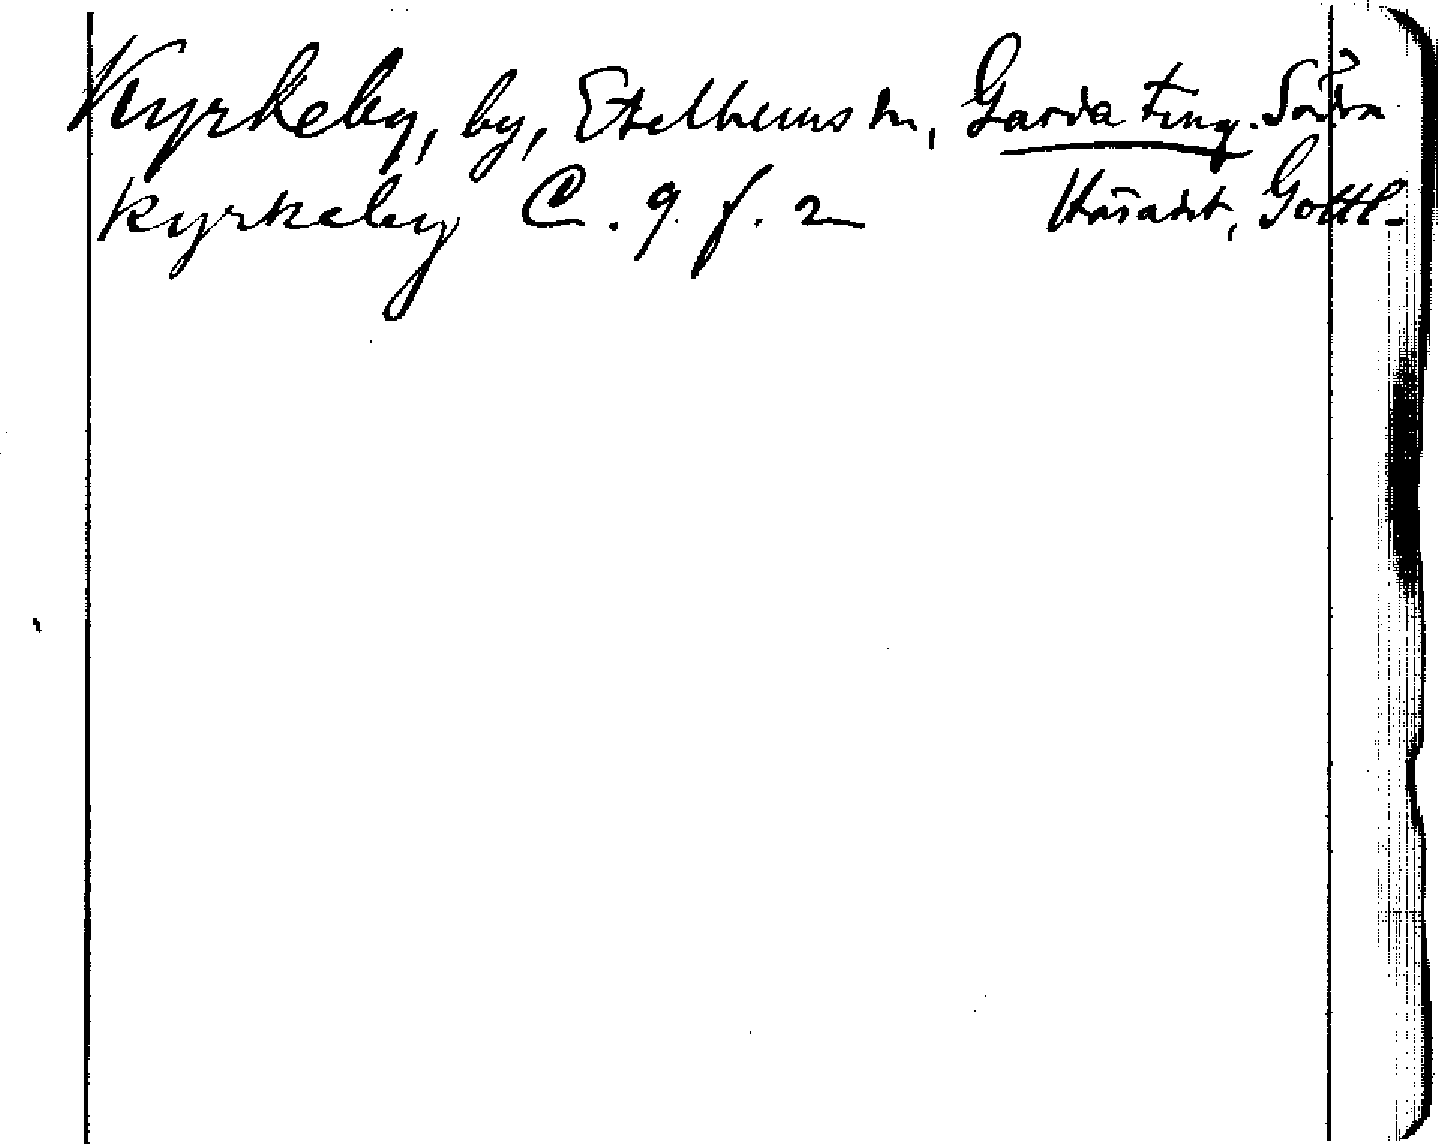 Kyrkeby, by, Etelhems sn, Garda ting. Södra
kyrkeby C. 9. f. 2 Häradet, Gottl.